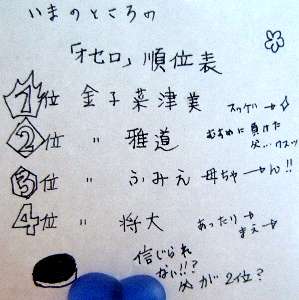 いまのところの
「オセロ」順位表
1位 金子菜津美 スッゲー→
2位 〃 雅道 むすめに負けた父…クスッ
3位 〃 ふみえ 母ちゃーん!!
4位 〃 将大 あったりまえー
信じられ
ない!!?
父が2位?